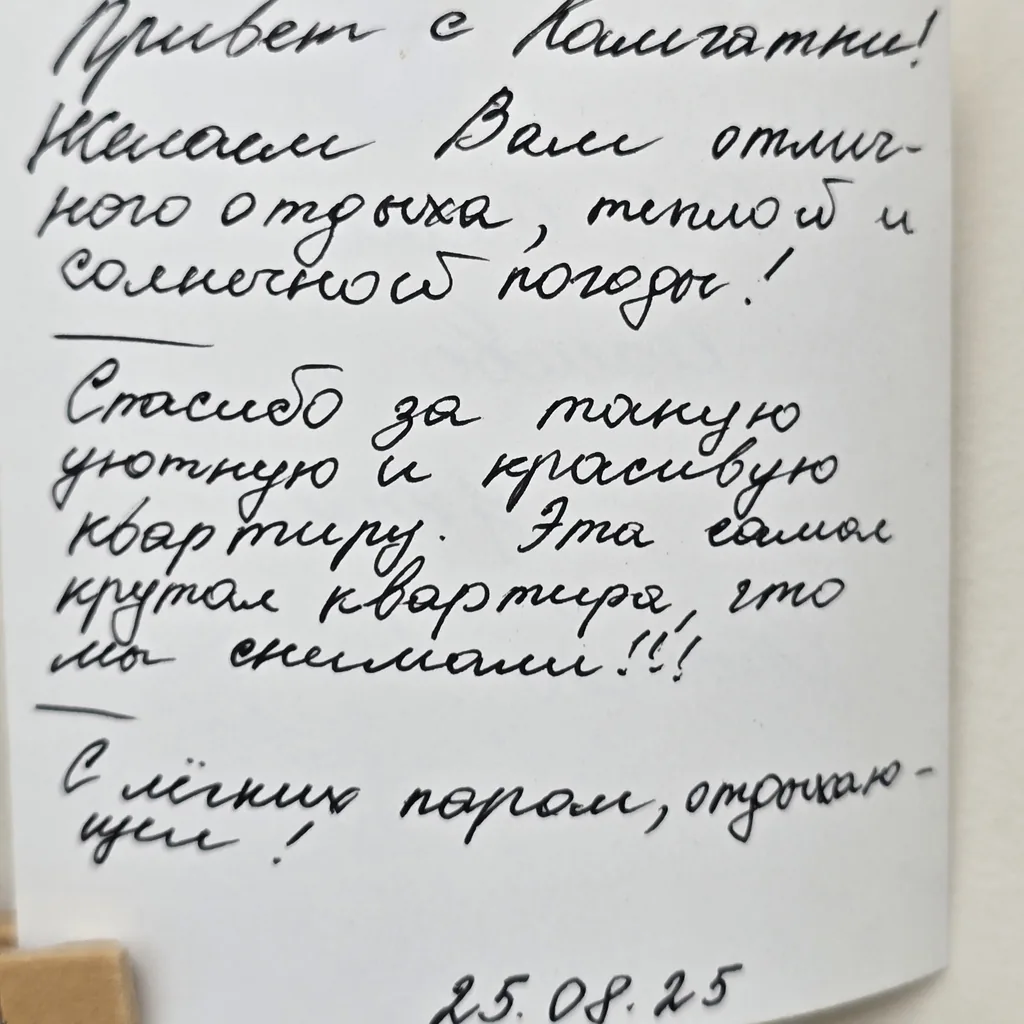 Привет с Камчатки!
Желаем Вам отлич-
ного отдыха, теплой и
солнечной погоды!
Спасибо за такую
уютную и красивую
квартиру. Эта самая
крутая квартира, что
мы снимали!!!
С лёгких паром, отдыхаю-
щие!
25.08.25